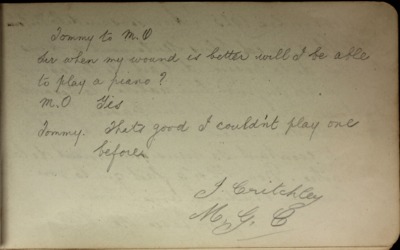 Tommy to M.O
Sir when my wound is better will I be able
to play a piano?
M.O Yes
Tommy. Thats good I couldn't play one
before.
J. Critchley
M. G. C